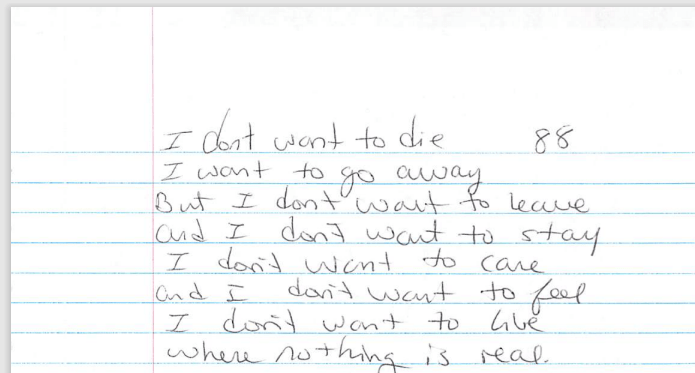 I dont want to die 88
I want to go away
But I don't want to leave
and I don't want to stay
I don't want to care
and I don't want to feel
I don't want to live
where nothing is real.